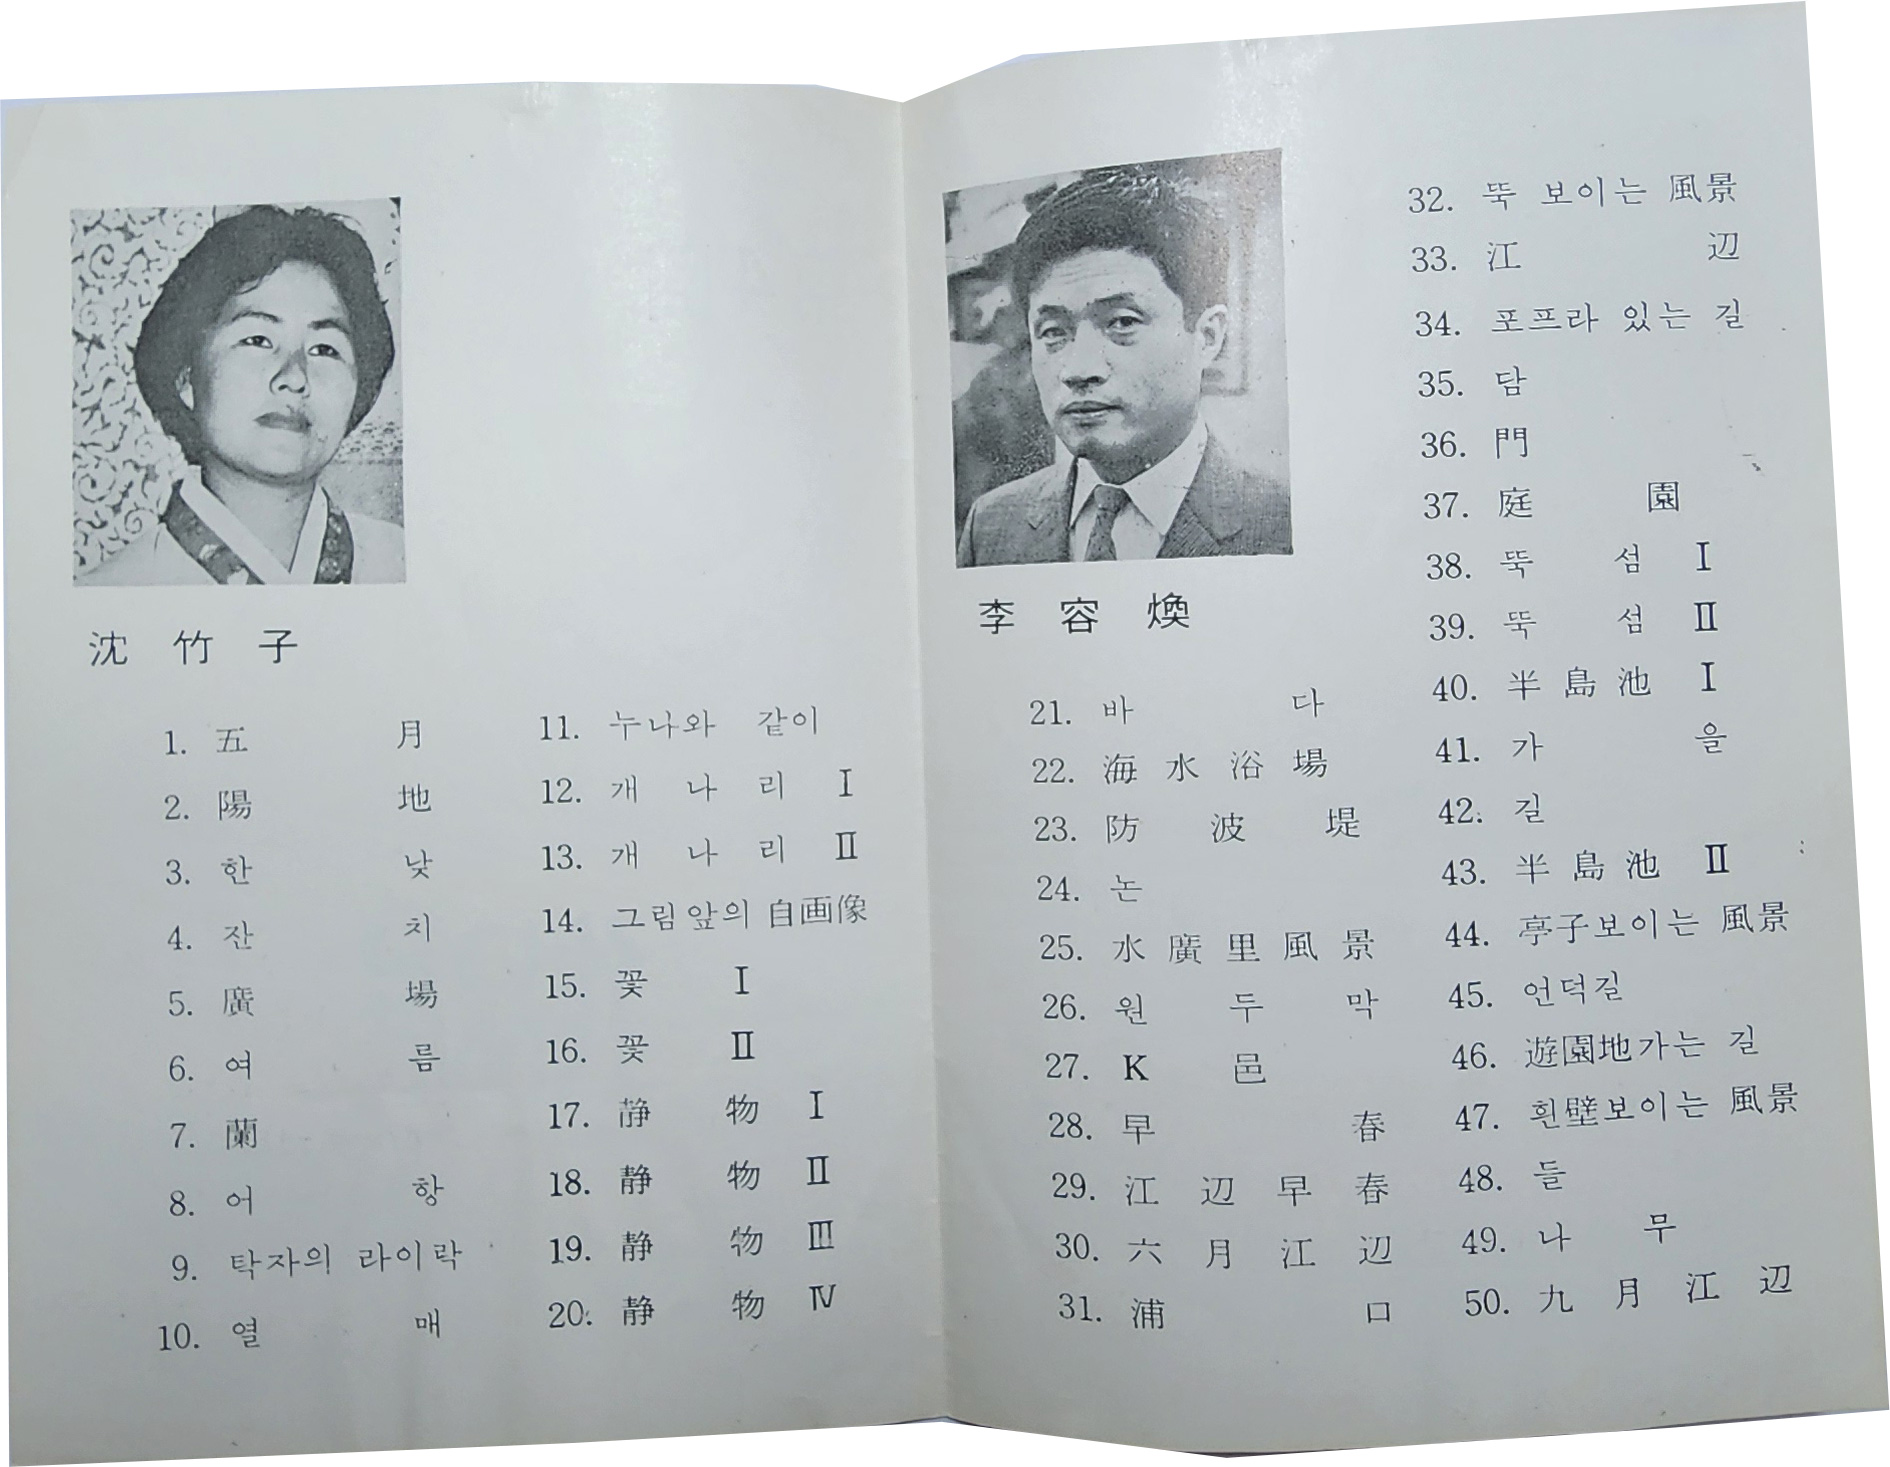 沈竹子
1. 五月
2. 陽地
3. 한낮
4. 잔치
5. 廣場
6. 여름
7. 蘭
8. 어항
9. 탁자의 라이락
10. 열매
11. 누나와 같이
12. 개나리 Ⅰ
13. 개나리 Ⅱ
14. 그림앞의 自画像
15. 꽃 Ⅰ
16. 꽃 Ⅱ
17. 静物 Ⅰ
18. 静物 Ⅱ
19. 静物 Ⅲ
20. 静物 Ⅳ
李容煥
21. 바다
22. 海水浴場
23. 防波堤
24. 논
25. 水廣里風景
26. 원두막
27. K邑
28. 早春
29. 江辺早春
30. 六月江辺
31. 浦口
32. 뚝 보이는 風景
33. 江辺
34. 포프라 있는 길
35. 담
36. 門
37. 庭園
38. 뚝섬 Ⅰ
39. 뚝섬 Ⅱ
40. 半島池 Ⅰ
41. 가을
42. 길
43. 半島池 Ⅱ
44. 亭子보이는 風景
45. 언덕길
46. 遊園地가는 길
47. 흰壁보이는 風景
48. 들
49. 나무
50. 九月江辺